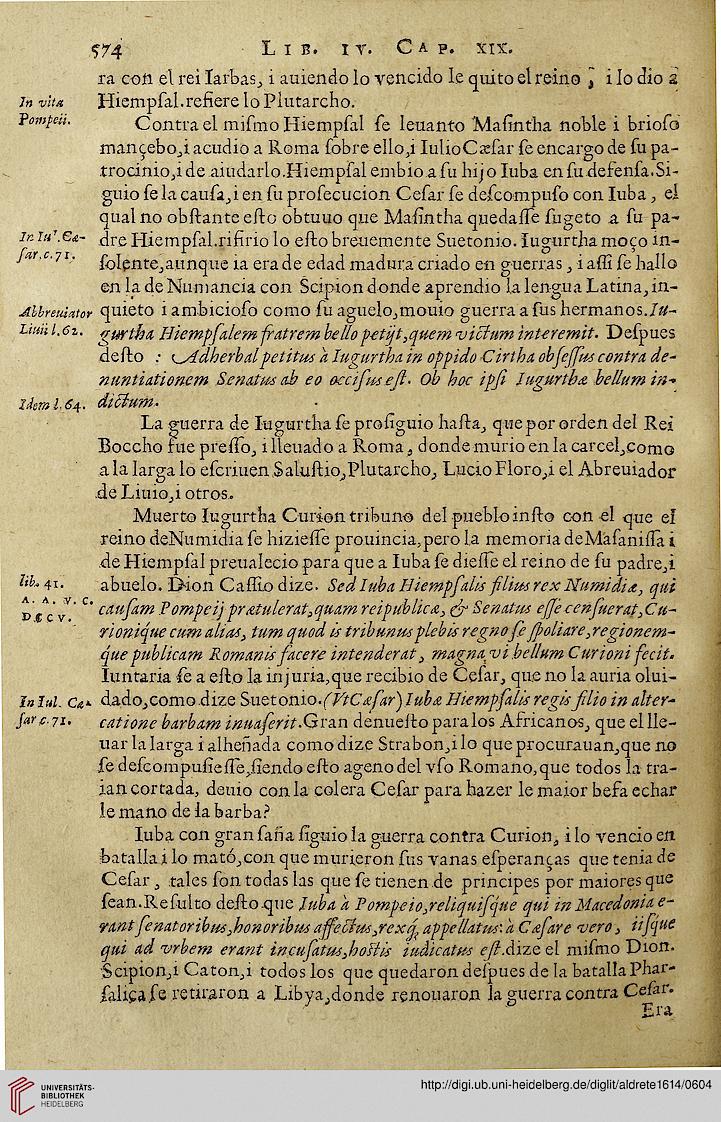 574 LIB. IV. CAP. XIX.
ra con el rei Iarbas, i auiendo lo vencido le quito el reino, i lo dio a
In vita Hiempſal. refiere lo Plutarcho.
Pompeii. Contra el miſmo Hiempſal ſe leuanto Maſintha noble i brioſo
mançebo, i acudio a Roma ſobre ello, i Iulio Cæſar ſe encargo de ſu pa-
trocinio, i de aiudarlo. Hiempſal embio a ſu hijo Iuba en ſu defenſa. Si-
guio ſe la cauſa, i en ſu proſecucion Ceſar ſe deſcompuſo con Iuba, el
qual no obſtante eſto obtuuo que Maſintha quedaſſe ſugeto a ſu pa-
In Iu^r. Cæ- dre Hiempſal. rifirio lo eſto breuemente Suetonio. Iugurtha moço in-
ſar. c. 71. ſolente, aunque ia era de edad madura criado en guerras, i aſſi ſe hallo
en la de Numancia con Scipion donde aprendio la lengua Latina, in-
Abbreuiator quieto i ambicioſo como ſu aguelo, mouio guerra a ſus hermanos. Iu-
Liuii l. 62. gurtha Hiempſalem fratrem bello petijt, quem victum interemit. Deſpues
deſto : Adherbal petitus à Iugurtha in oppido Cirtha obſeſſus contra de-
nuntiationem Senatus ab eo occiſus eſt. Ob hoc ipſi Iugurthæ bellum in-
Idem l. 64. dictum.
La guerra de Iugurtha ſe proſiguio haſta, que por orden del Rei
Boccho fue preſſo, i lleuado a Roma, donde murio en la carcel, como
a la larga lo eſcriuen Saluſtio, Plutarcho, Lucio Floro, i el Abreuiador
de Liuio, i otros.
Muerto Iugurtha Curion tribuno del pueblo inſto con el que el
reino deNumidia ſe hizieſſe prouincia, pero la memoria de Maſaniſſa i
de Hiempſal preualecio para que a Iuba ſe dieſſe el reino de ſu padre, i
lib. 41. abuelo. Dion Caſſio dize. Sed Iuba Hiempſalis filius rex Numidiæ, qui
A. A. V. C. cauſam Pompeij prætulerat, quam reipublicæ, & Senatus eſſe cenſuerat, Cu-
DCCV. rionique cum alias, tum quod is tribunus plebis regno ſe ſpoliare, regionem-
que publicam Romanis facere intenderat, magna vi bellum Curioni fecit.
Iuntaria ſe a eſto la injuria, que recibio de Ceſar, que no la auria olui-
In Iul. Cæ- dado, como dize Suetonio. (Vt Cæſar) Iubæ Hiempſalis regis filio in alter-
ſar c. 71. catione barbam inuaſerit. Gran denueſto para los Africanos, que el lle-
uar la larga i alheñada como dize Strabon, i lo que procurauan, que no
ſe deſcompuſieſſe, ſiendo eſto ageno del vſo Romano, que todos la tra-
ian cortada, deuio con la colera Ceſar para hazer le maior befa echar
le mano de la barba?
Iuba con gran ſaña ſiguio la guerra contra Curion, i lo vencio en
batalla i lo mató, con que murieron ſus vanas eſperanças que tenia de
Ceſar, tales ſon todas las que ſe tienen de principes por maiores que
ſean. Reſulto deſto que Iuba à Pompeio, reliquiſque qui in Macedonia e-
rant ſenatoribus, honoribus affectus, rexq́, appellatus: à Cæſare vero, iiſque
qui ad vrbem erant incuſatus, hoſtis iudicatus eſt. dize el miſmo Dion.
Scipion, i Caton, i todos los que quedaron deſpues de la batalla Phar-
ſaliça ſe retiraron a Libya, donde renouaron la guerra contra Ceſar.
Era
UNIVERSITÄTS-
BIBLIOTHEK
HEIDELBERG
http://digi.ub.uni-heidelberg.de/diglit/aldrete1614/0604